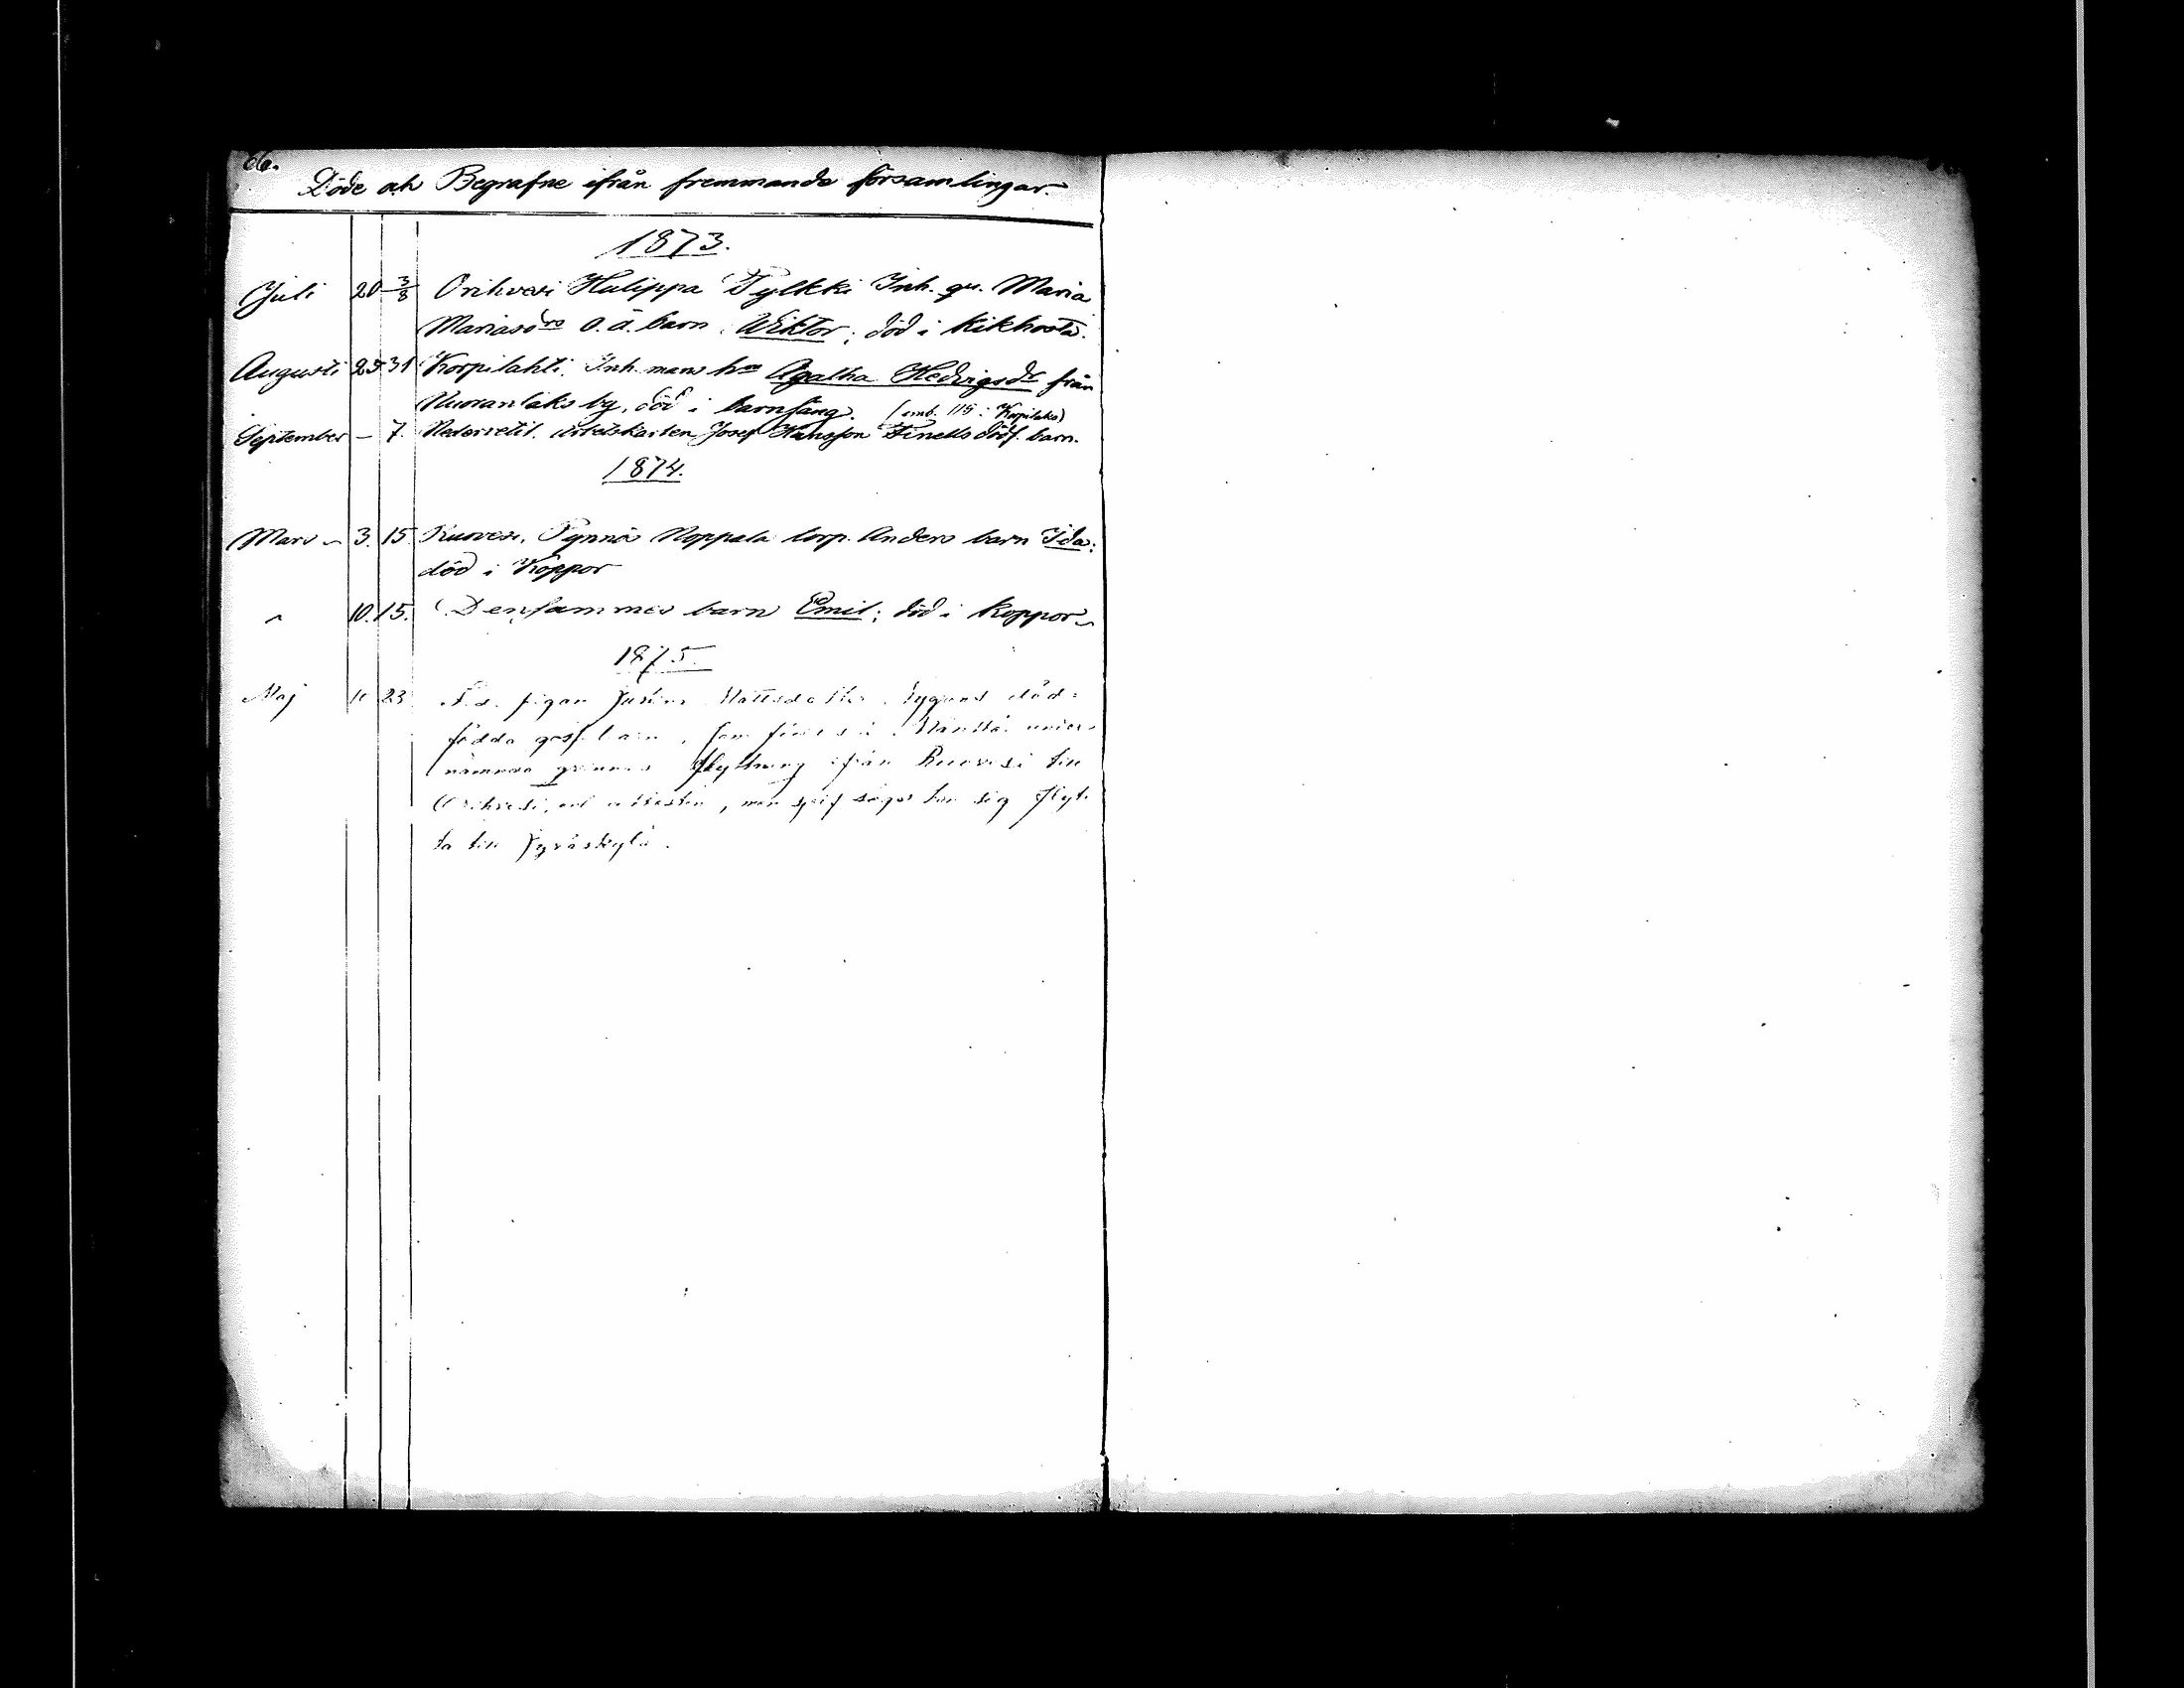 66.
Döde och Begrafne ifrån fremmande församlingar.
1873.
Juli 20 3/8 Orihvesi Hulippa Pylkki Inh. qv. Maria
Mariasdrs o.ä. barn Wiktor; död i Kikhosta.
Augusti 25 31 Korpilahti. Inh. mans hu Agatha Hedvigsdr från
by, död i barnsäng. (emb. 115 i Korpilaks)
September – 7. Nedervetil. Josef Hansson Finells dödf. barn.
1874.
Mars 3. 15. Ruovesi, Pynnö Noppala torp. Anders barn Ida;
död i Koppor
10. 15. Densammes barn Emil; död i koppor
1875.
Maj 23. F.d. pigan Mattsdotter död=
födda som föddes i Mänttä under
flyttning ifrån Ruovesi till
Orihvesi, enl attesten, men sjelf säger hon sig flyt=
ta till Jyväskylä.